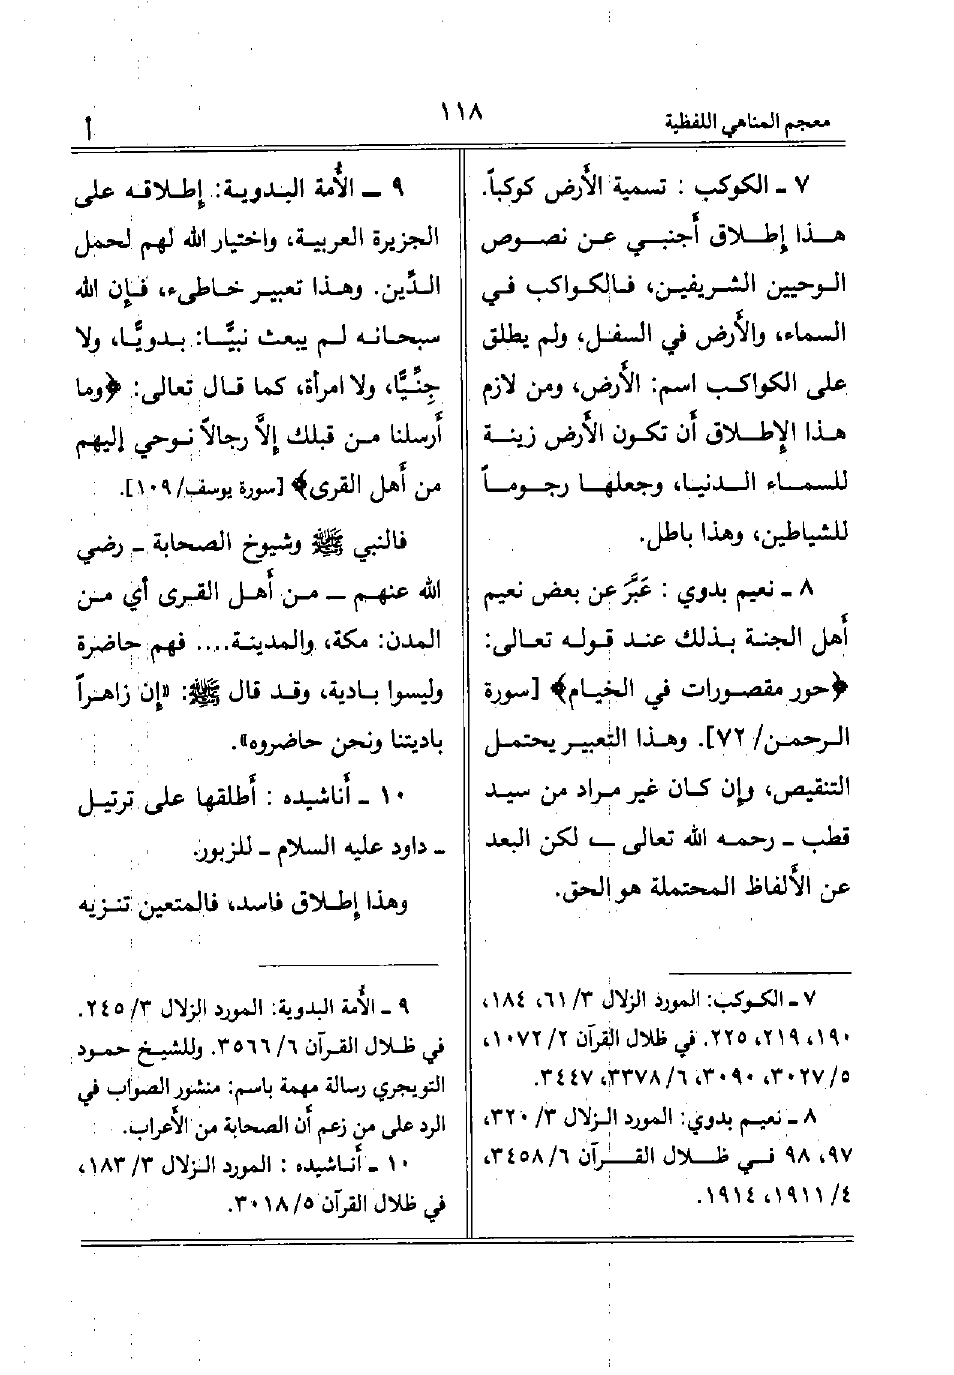 معجم المناهي اللفظية
١١٨
أ
٧ ـ الكوكب : تسمية الأرض كوكباً.
هذا إطلاق أجنبي عن نصوص
الوحيين الشريفين، فالكواكب في
السماء، والأرض في السفل، ولم يطلق
على الكواكب اسم: الأرض، ومن لازم
هذا الإطلاق أن تكون الأرض زينة
للسماء الدنيا، وجعلها رجوماً
للشياطين، وهذا باطل.
٨ ـ نعيم بدوي : عَبَّر عن بعض نعيم
أهل الجنة بذلك عند قوله تعالى:
﴿حور مقصورات في الخيام﴾ [سورة
الرحمن/ ٧٢]. وهذا التعبير يحتمل
التنقيص، وإن كان غير مراد من سيد
قطب ـ رحمه الله تعالى ـ لكن البعد
عن الألفاظ المحتملة هو الحق.
٩ ـ الأمة البدوية: إطلاقه على
الجزيرة العربية، واختيار الله لهم لحمل
الدِّين. وهذا تعبير خاطىء، فإن الله
سبحانه لم يبعث نبيًّا: بدويًّا، ولا
جِنِّيًّا، ولا امرأة، كما قال تعالى: ﴿وما
أرسلنا من قبلك إلاَّ رجالاً نوحي إليهم
من أهل القرى﴾ [سورة يوسف/ ١٠٩].
فالنبي ﷺ وشيوخ الصحابة ـ رضي
الله عنهم ـ من أهل القرى أي من
المدن: مكة، والمدينة.... فهم حاضرة
وليسوا بادية، وقد قال ﷺ: «إن زاهراً
باديتنا ونحن حاضروه».
١٠ ـ أناشيده : أطلقها على ترتيل
ـ داود عليه السلام ـ للزبور.
وهذا إطلاق فاسد، فالمتعين تنزيه
٧ ـ الكوكب: المورد الزلال ٣/ ٦١، ١٨٤،
١٩٠، ٢١٩، ٢٢٥. في ظلال القرآن ٢/ ١٠٧٢،
٥/ ٣٠٢٧، ٣٠٩٠، ٦/ ٣٣٧٨، ٣٤٤٧.
٨ ـ نعيم بدوي: المورد الزلال ٣/ ٣٢٠،
٩٧، ٩٨ في ظلال القرآن ٦/ ٣٤٥٨،
٤/ ١٩١١، ١٩١٤.
٩ ـ الأمة البدوية: المورد الزلال ٣/ ٢٤٥.
في ظلال القرآن ٦/ ٣٥٦٦. وللشيخ حمود
التويجري رسالة مهمة باسم: منشور الصواب في
الرد على من زعم أن الصحابة من الأعراب.
١٠ ـ أناشيده : المورد الزلال ٣/ ١٨٣،
في ظلال القرآن ٥/ ٣٠١٨.